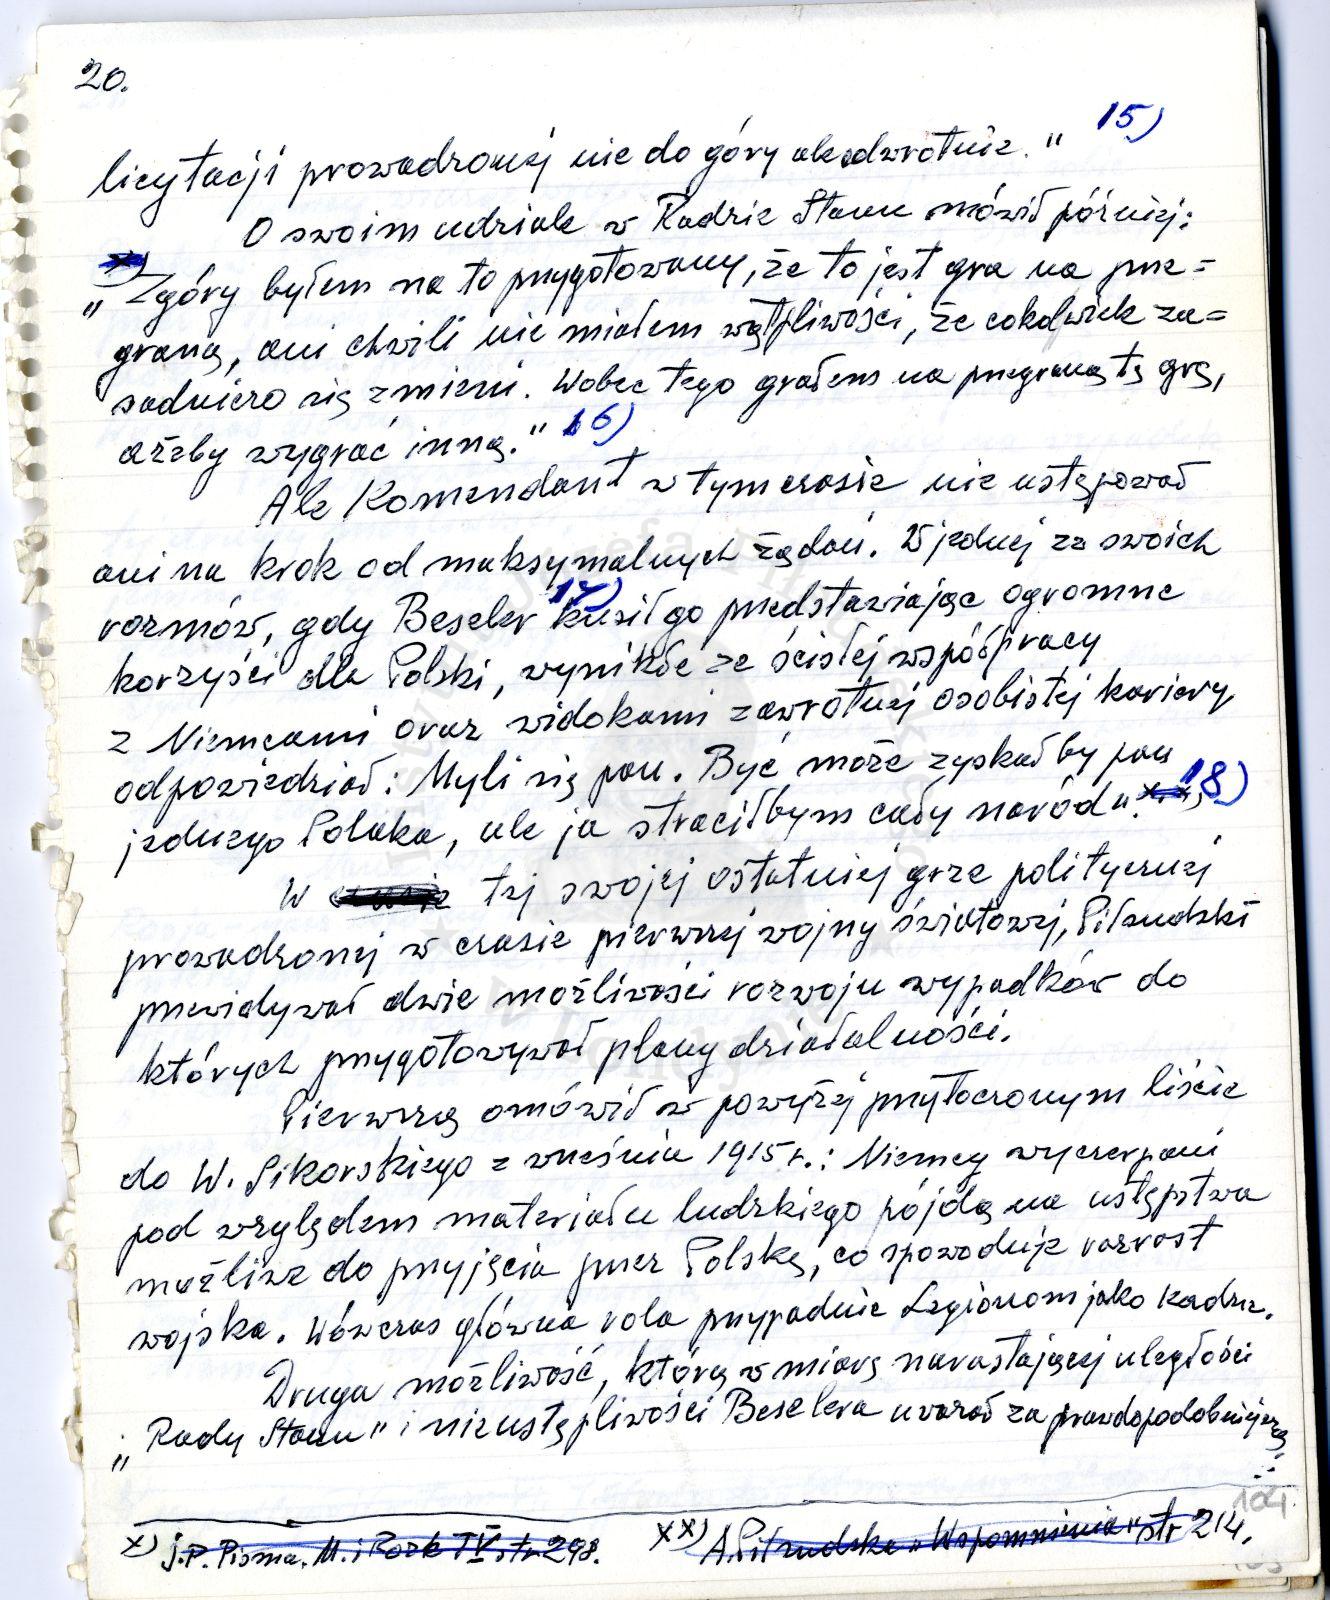 20.
licytacji prowadzonej nie do góry ale odwrotnie." 15)
O swoim udziale w Radzie Stanu mówił później:
x)
„Zgóry byłem na to przygotowany, że to jest gra na prze=
graną, ani chwili nie miałem wątpliwości, że cokolwiek za=
sadniczo się zmieni. Wobec tego grałem na przegraną tę grę,
ażeby wygrać inną." 16)
Ale Komendant w tym czasie nie ustępował
ani na krok od maksymalnych żądań. W jednej ze swoich
rozmów, gdy Beseler 17) kusił go przedstawiając ogromne
korzyści dla Polski, wynikłe ze ścisłej współpracy
z Niemcami oraz widokami zawrotnej osobistej kariery
odpowiedział: Myli się pan. Być może zyskałby pan
jednego Polaka, ale ja straciłbym cały naród". xx) 18)
W tej swojej ostatniej grze politycznej
prowadzonej w czasie pierwszej wojny światowej, Piłsudski
przewidywał dwie możliwości rozwoju wypadków do
których przygotowywał plany działalności.
Pierwszą omówił w powyżej przytoczonym liście
do W. Sikorskiego z września 1915 r.: Niemcy wyczerpani
pod względem materiału ludzkiego pójdą na ustępstwa
możliwe do przyjęcia przez Polskę, co spowoduje rozrost
wojska. Wówczas główna rola przypadnie Legionom jako kadrze.
Druga możliwość, którą w miarę narastającej uległości
„Rady Stanu" i nieustępliwości Beselera uważał za prawdopodobniejszą
104
x) J.P. Pisma. M. i Rozk T V str 298. xx) A. Piłsudska „Wspomnienia" str 214.